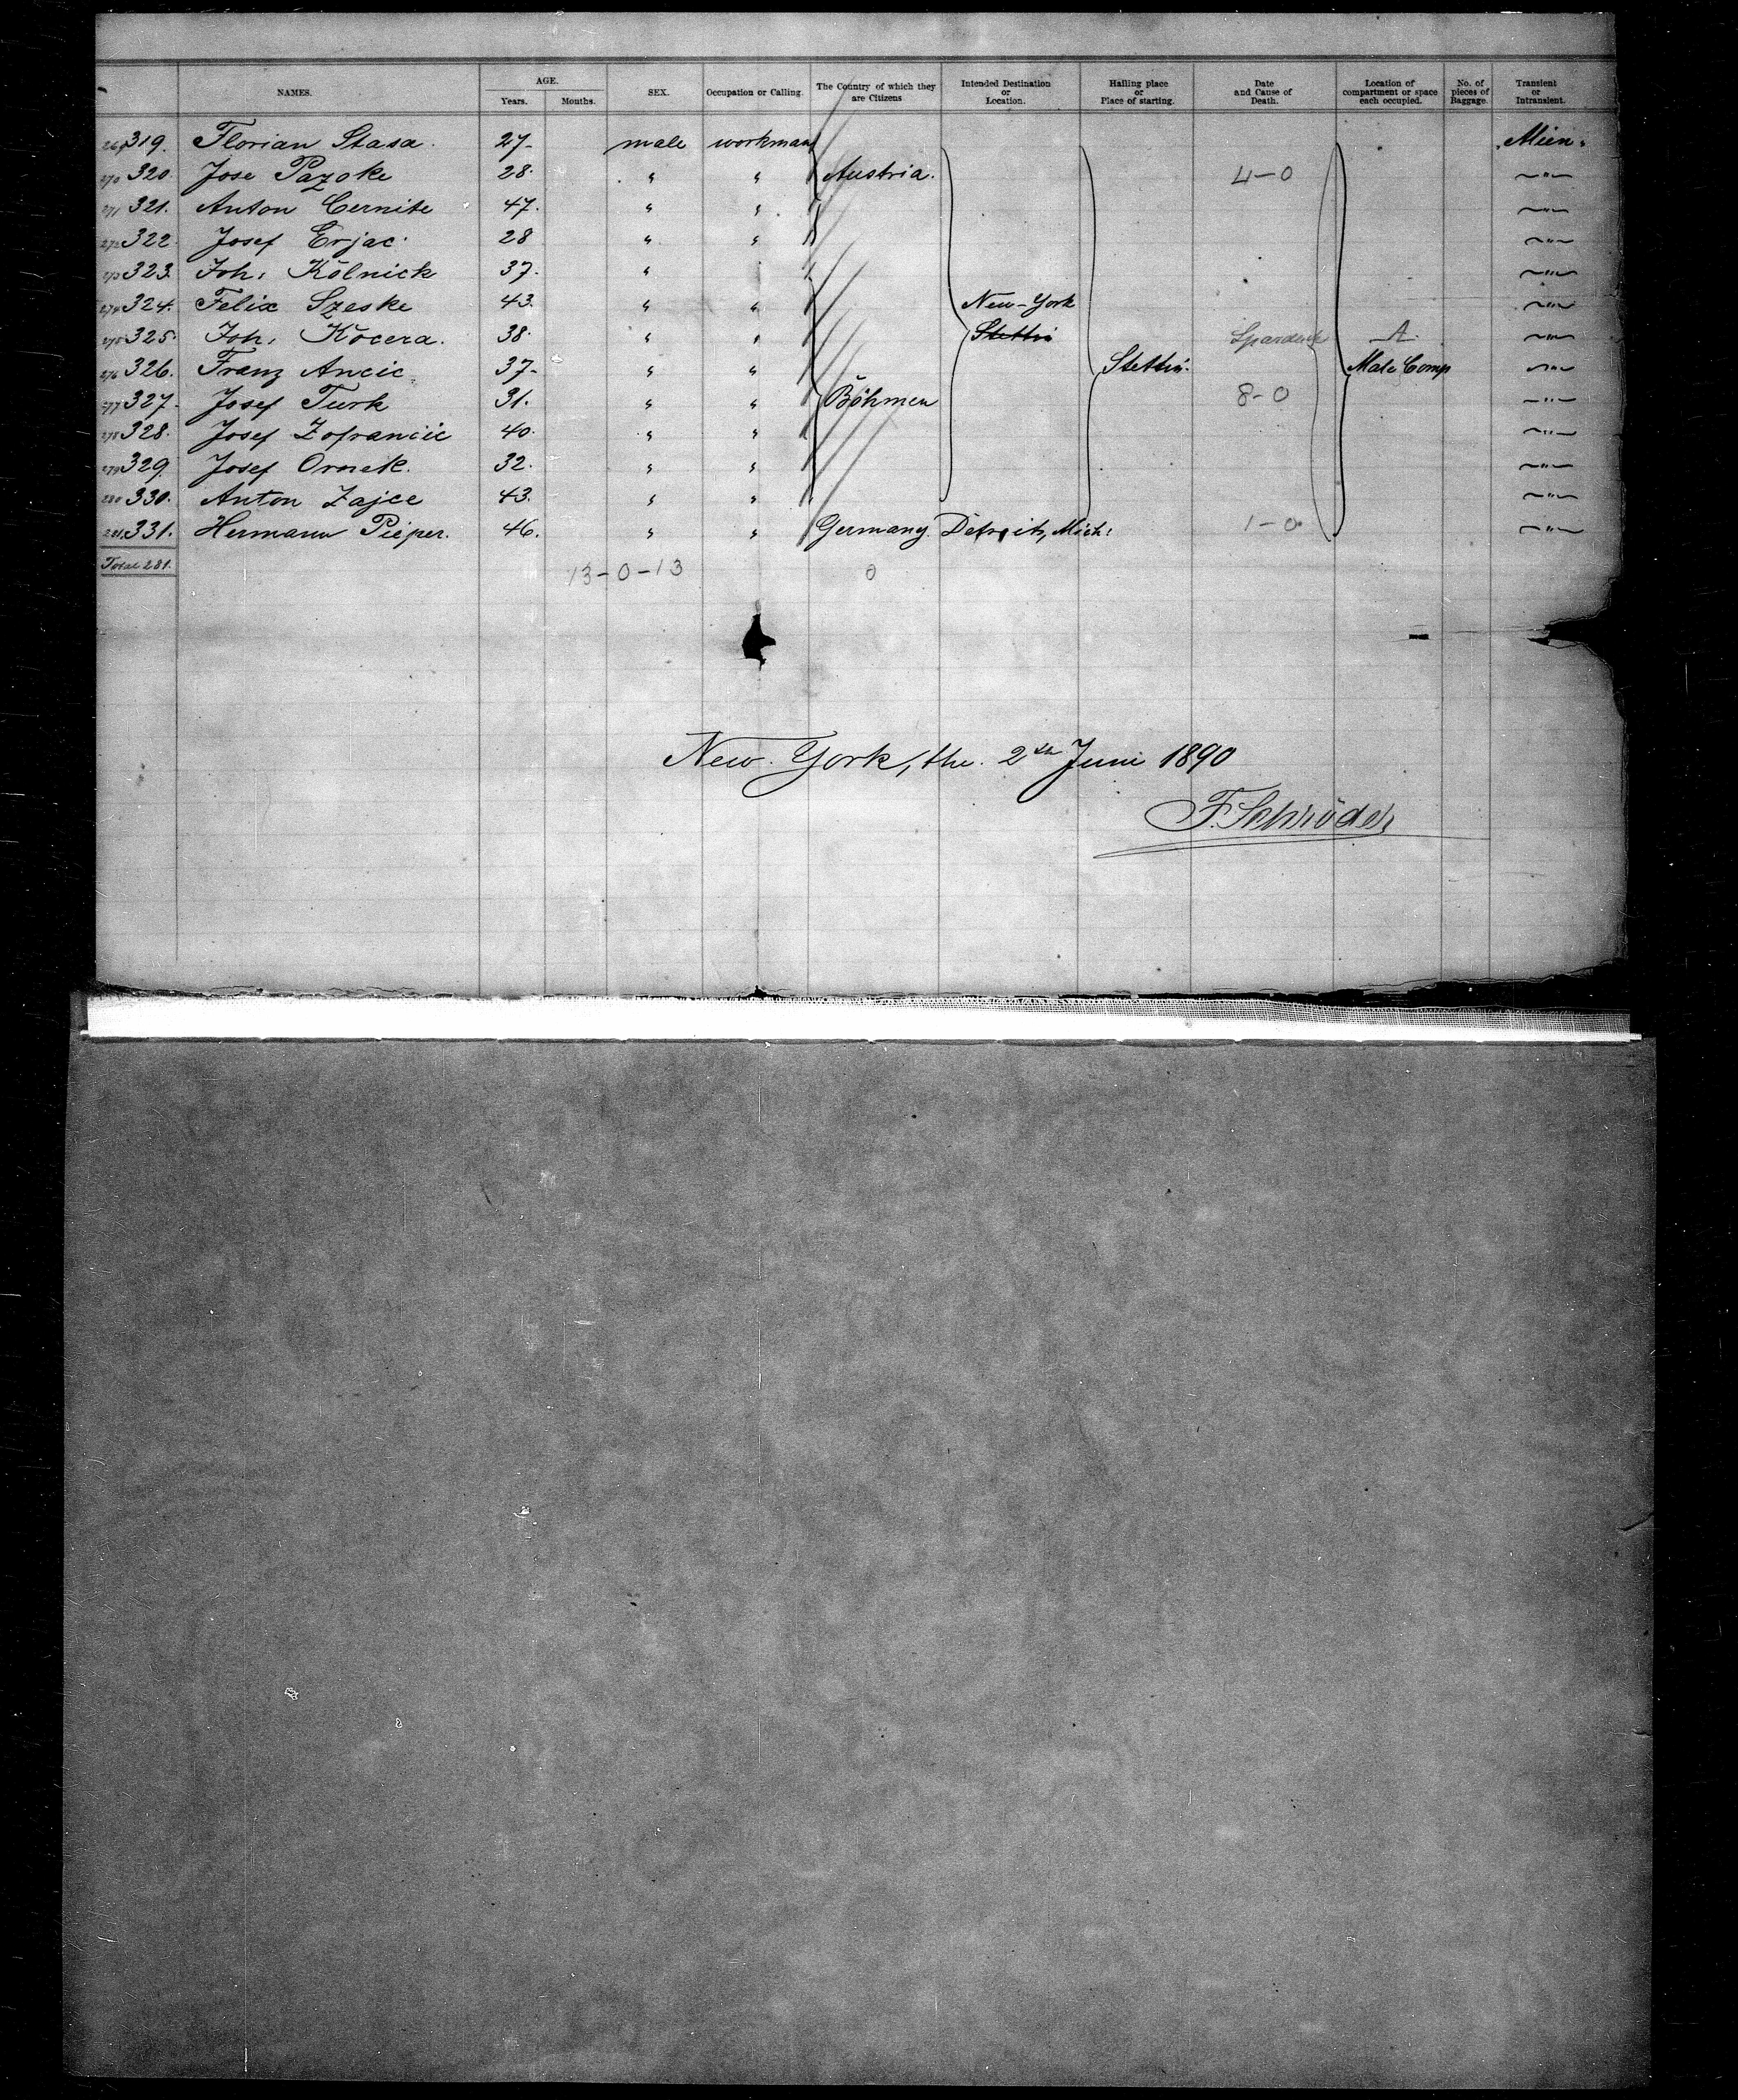 NAMES. AGE. Years. Months. SEX. Occupation or Calling. The Country of which they are Citizens Intended Destination or Location. Hailing place or Place of starting. Date and Cause of Death. Location of compartment or space each occupied. No. of pieces of Baggage. Transient or Intransient.
319. Florian Stasa. 27- male workman
270 320. Jose Pazoke 28. " " Austria. 4-0 "
271 321. Anton Cernite 47. " " "
272 322. Josef Erjac. 28 " " "
273 323. Joh. Kölnick 37. " "
274 324. Felix Szeske 43. " " New-York "
275 325. Joh. Kocera. 38. " " Stettin A. "
276 326. Franz Ancic 37- " " Stettin. Male Comp "
277 327. Josef Turk 31. " " Böhmen 8-0 "
278 328. Josef Zofrancic 40. " " "
279 329. Josef Ornek. 32. " " "
280 330. Anton Zajce 43. " " "
281. 331. Hermann Pieper. 46. " " Germany. Detroit, Mich. 1-0 "
Total 281. 13-0-13 0
New-York, the 2th Juni 1890
F. Schröder